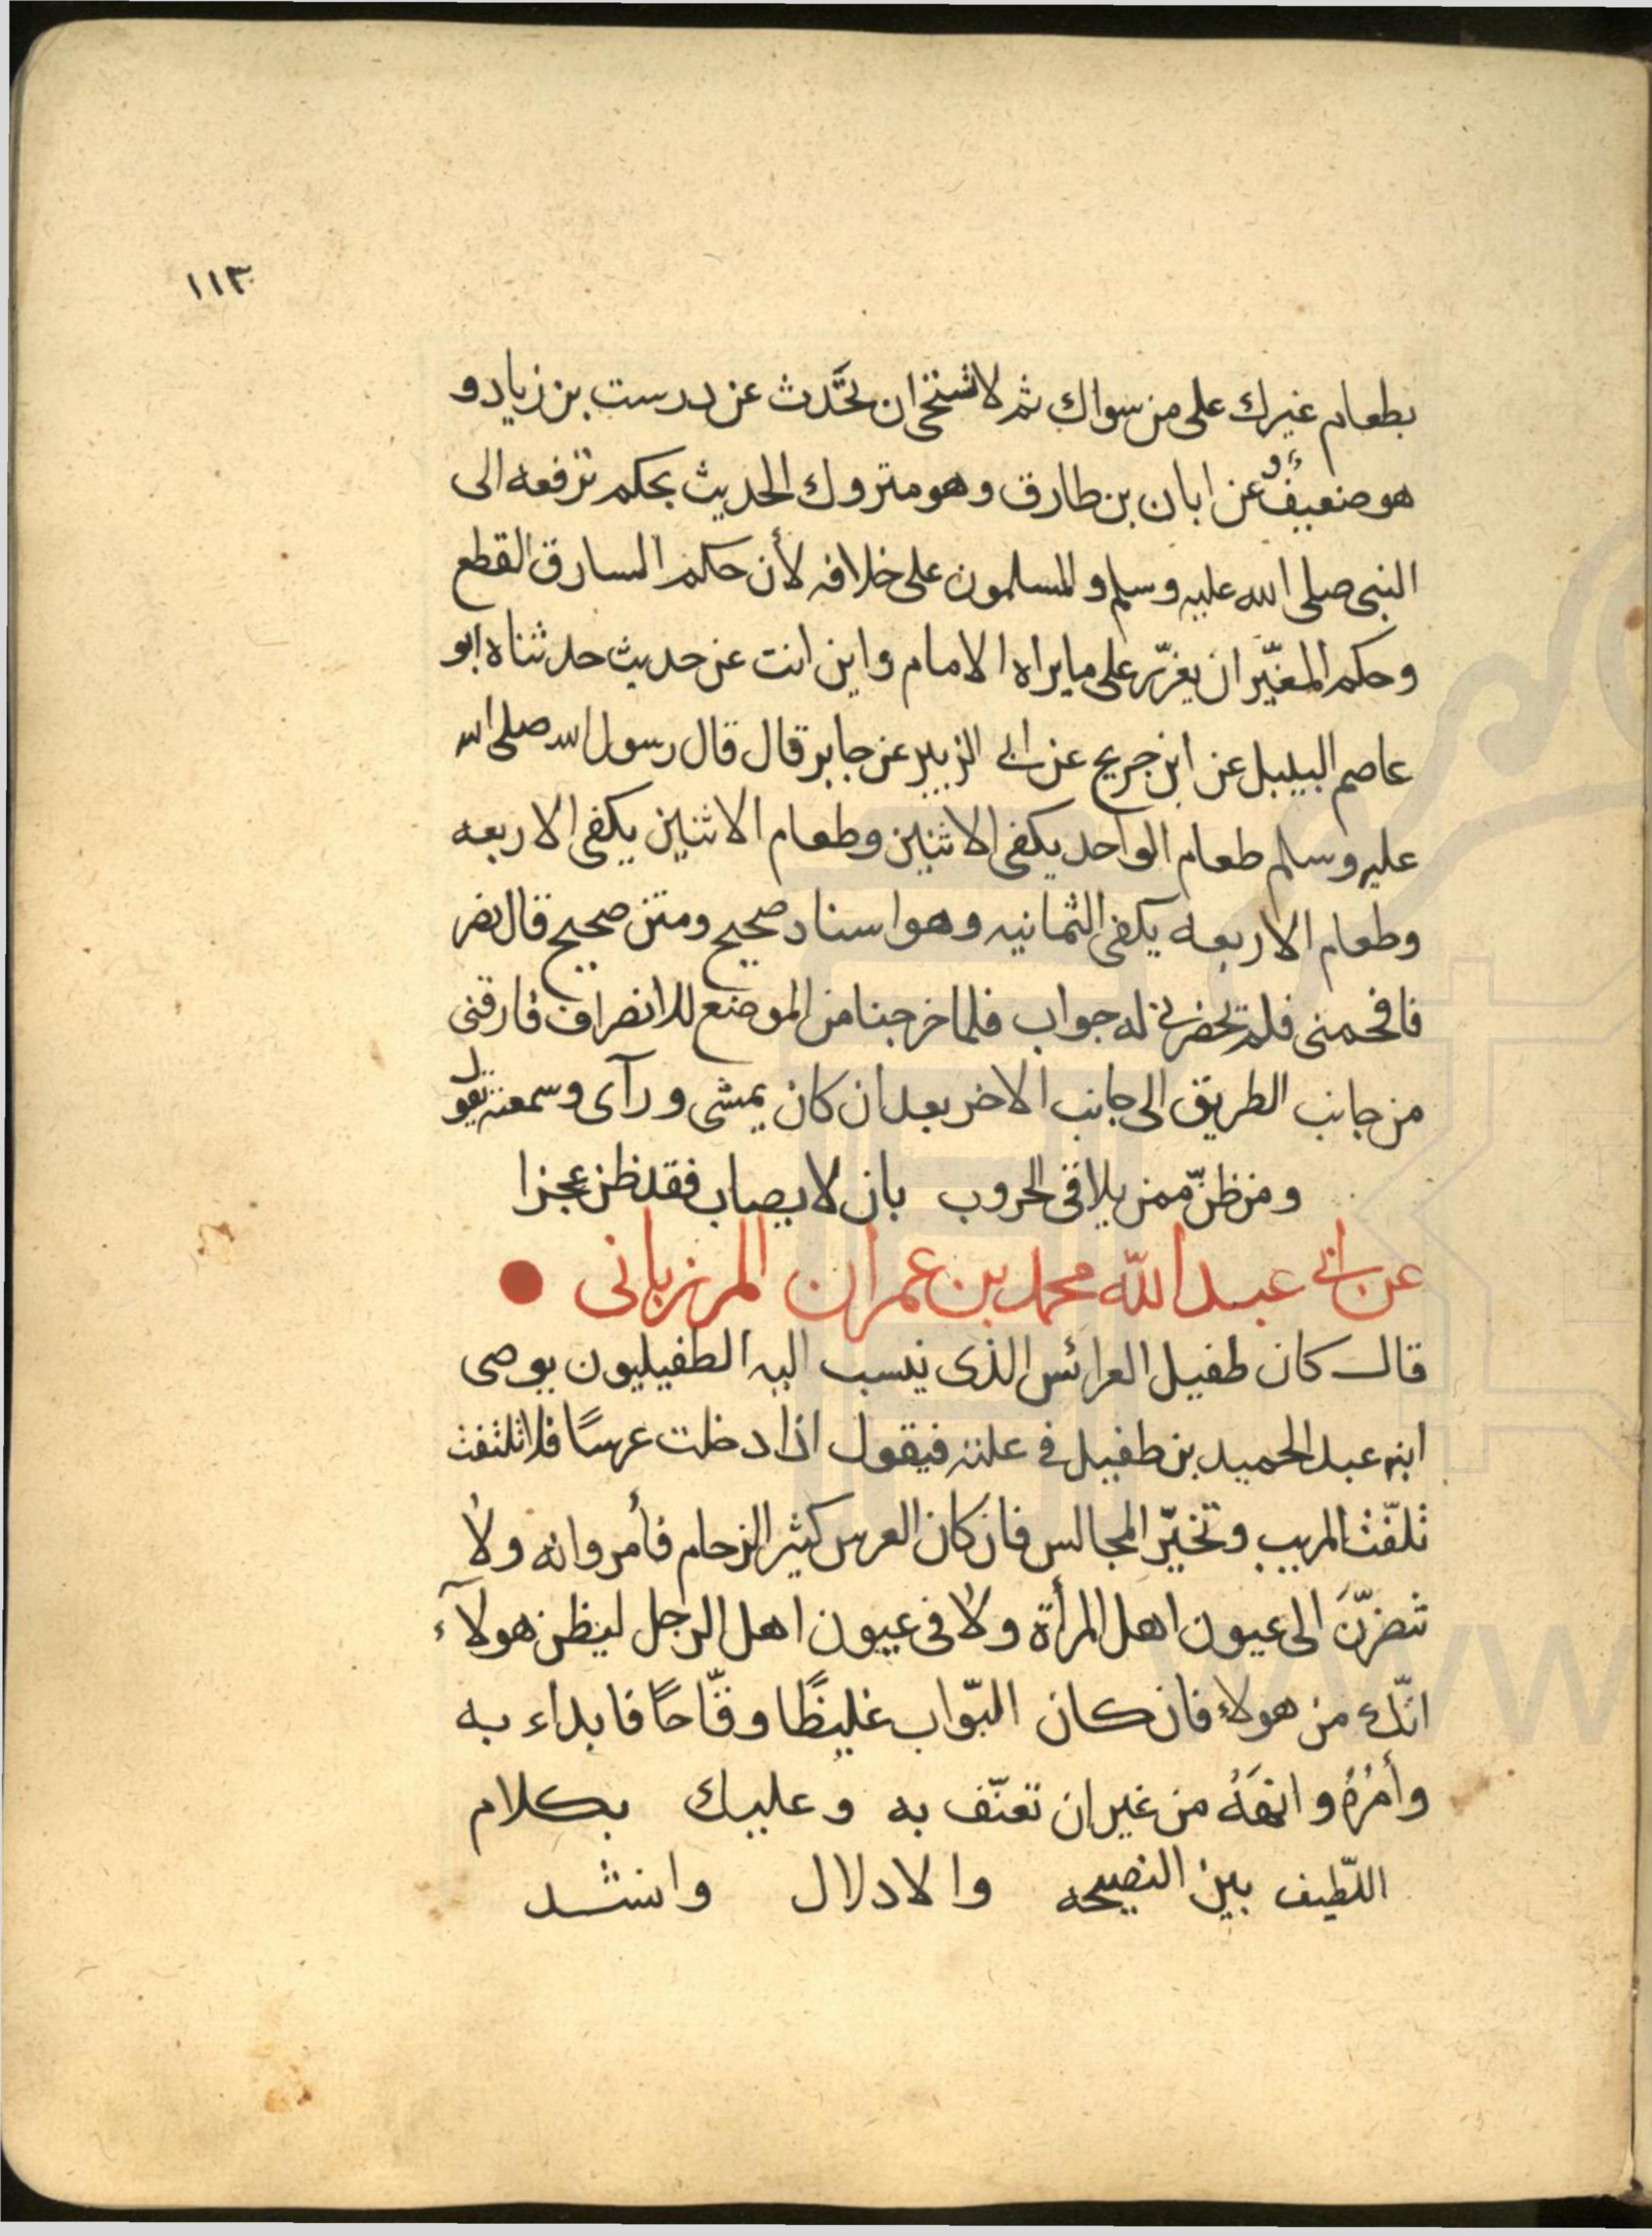 ١١٣
بطعام غيرك على من سواك ثم لا تستحى ان تحَّدث عن درست بن زياد و
هو ضعيفٌ عن ابان بن طارق وهو متروك الحديث بحكم ترفعه الى
النبى صلى الله عليه وسلم والمسلمون على خلافه لأن حكم السارق القطع
وحكم المغيّر ان يعزّر على ما يراه الامام واين انت عن حديث حدثناه ابو
عاصم البيبل عن ابن جريح عن ابى الزبير عن جابر قال قال رسول الله صلى الله
عليه وسلم طعام الواحد يكفى الاثنين وطعام الاثنين يكفى الاربعه
وطعام الاربعه يكفى الثمانيه وهو اسناد صحيح ومتن صحيح قال نضر
فافحمنى فلم يحضرنى له جواب فلما خرجنا من الموضع للانصراف فارقنى
من جانب الطريق الى جانب الاخر بعد ان كان يمشى ورآى وسمعته يقول
ومن ظنّ ممن يلاقى الحروب بان لا يصاب فقد ظن عجزا
عن ابى عبد الله محمد بن عمران المرزبانى
قال كان طفيل العرائس الذى ينسب اليه الطفيليون يوصى
ابنه عبد الحميد بن طفيل فى علته فيقول اذا دخلت عرسًا فلا تلتفت
تلفّت المريب وتخيّر المجالس فان كان العرس كثير الزحام فأمر وانه ولا
تنضرّنَ الى عيون اهل المرأة ولا فى عيون اهل الرجل ليظن هولآء
انّك من هولاء فان كان البّواب غليظًا وقّاحًا فابداء به
وأمُرُهُ وانهَهُ من غير ان تعنّف به وعليك بكلام
اللّطيف بين النصيحه والادلال وانشد